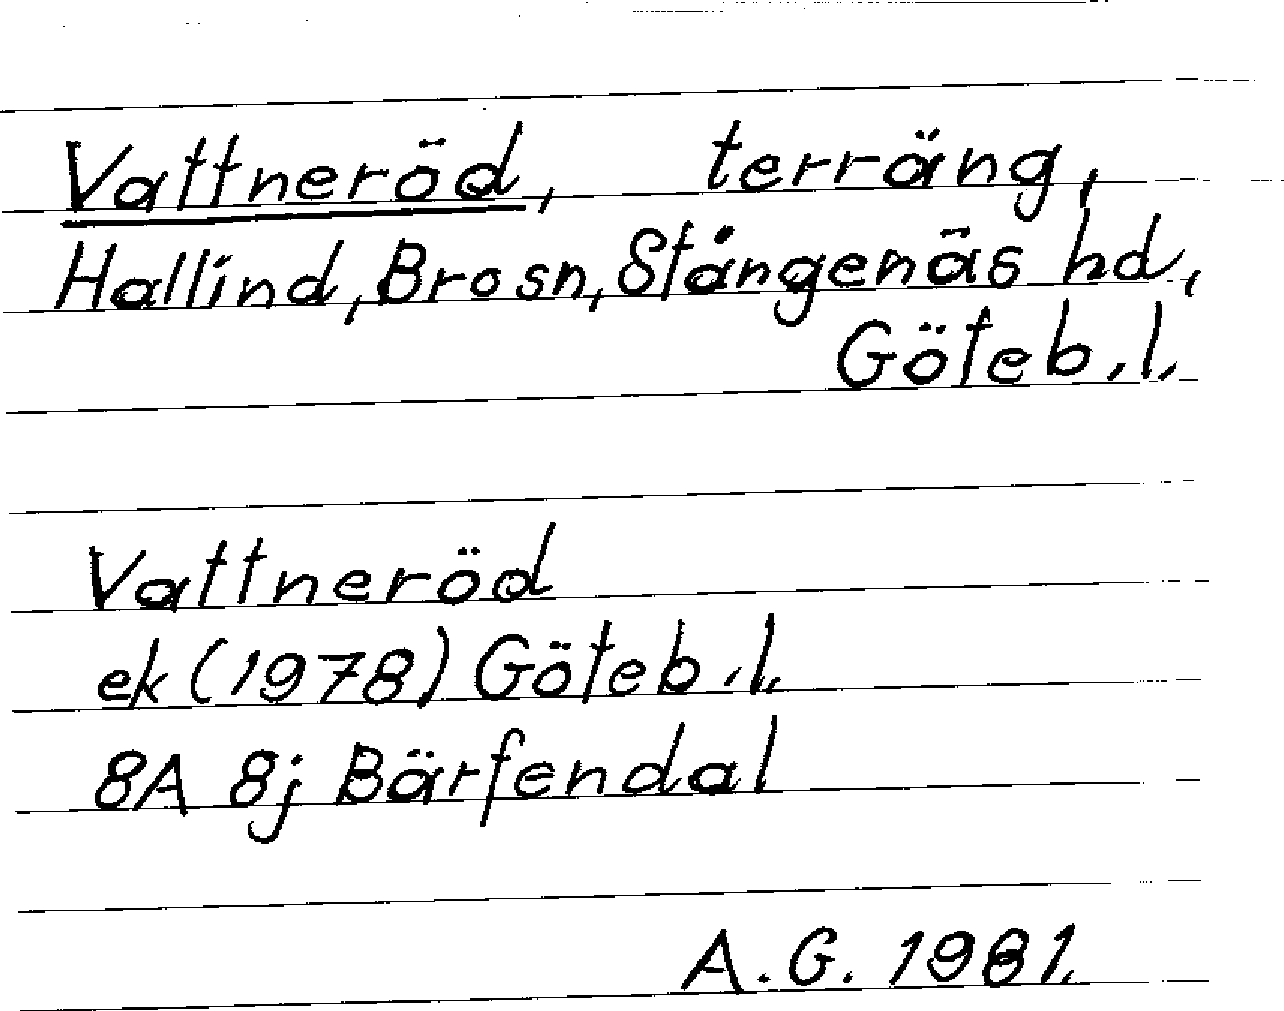 Vattneröd, terräng,
Hallind, Bro sn, Stångenäs hd,
Göteb.l.
Vattneröd
ek (1978) Göteb.l.
8A 8j Bärfendal
A.G. 1981.